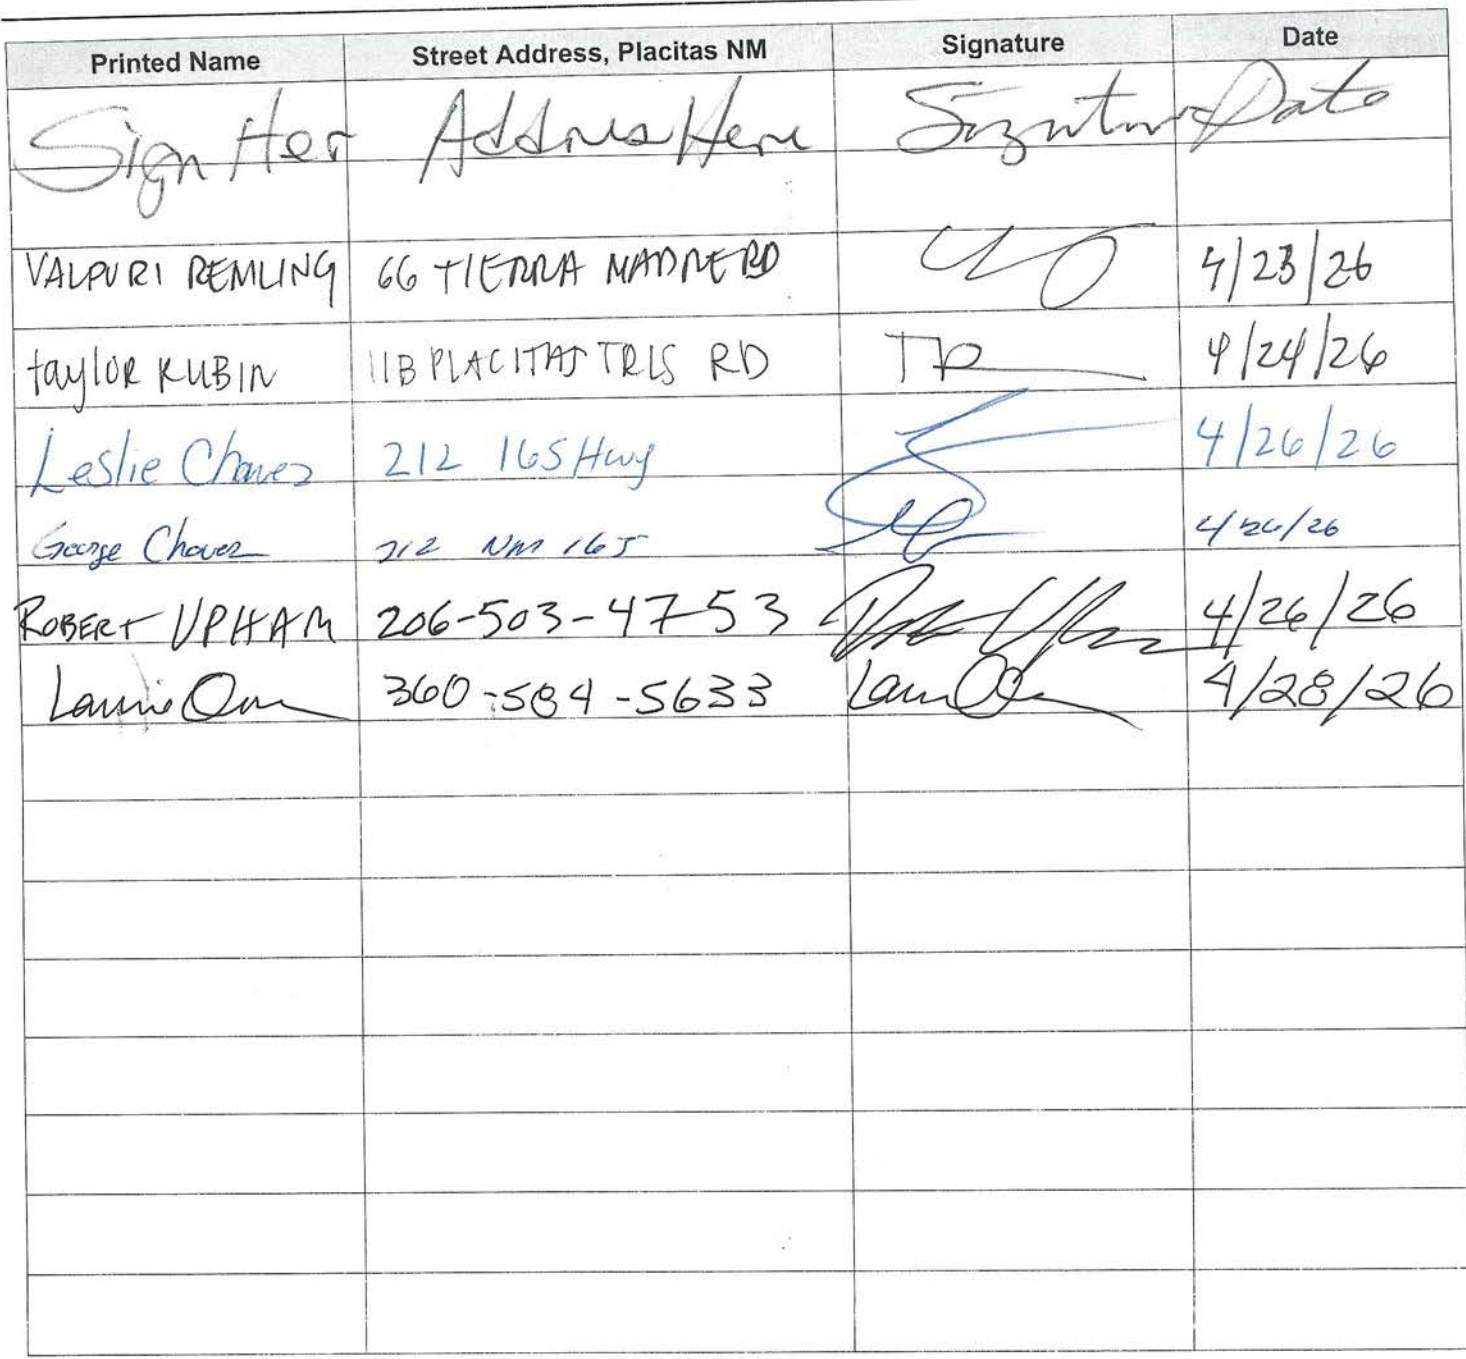 Printed Name Street Address, Placitas NM Signature Date
Sign Her Address Here Signature Date
VALPURI REMLING 66 TIERRA MADRE RD 4/23/26
taylor RUBIN 11B PLACITAS TRLS RD TR 4/24/26
Leslie Chavez 212 165 Hwy 4/26/26
George Chavez 212 NM 165 4/26/26
ROBERT UPHAM 206-503-4753 4/26/26
Laurie 360-584-5633 4/28/26